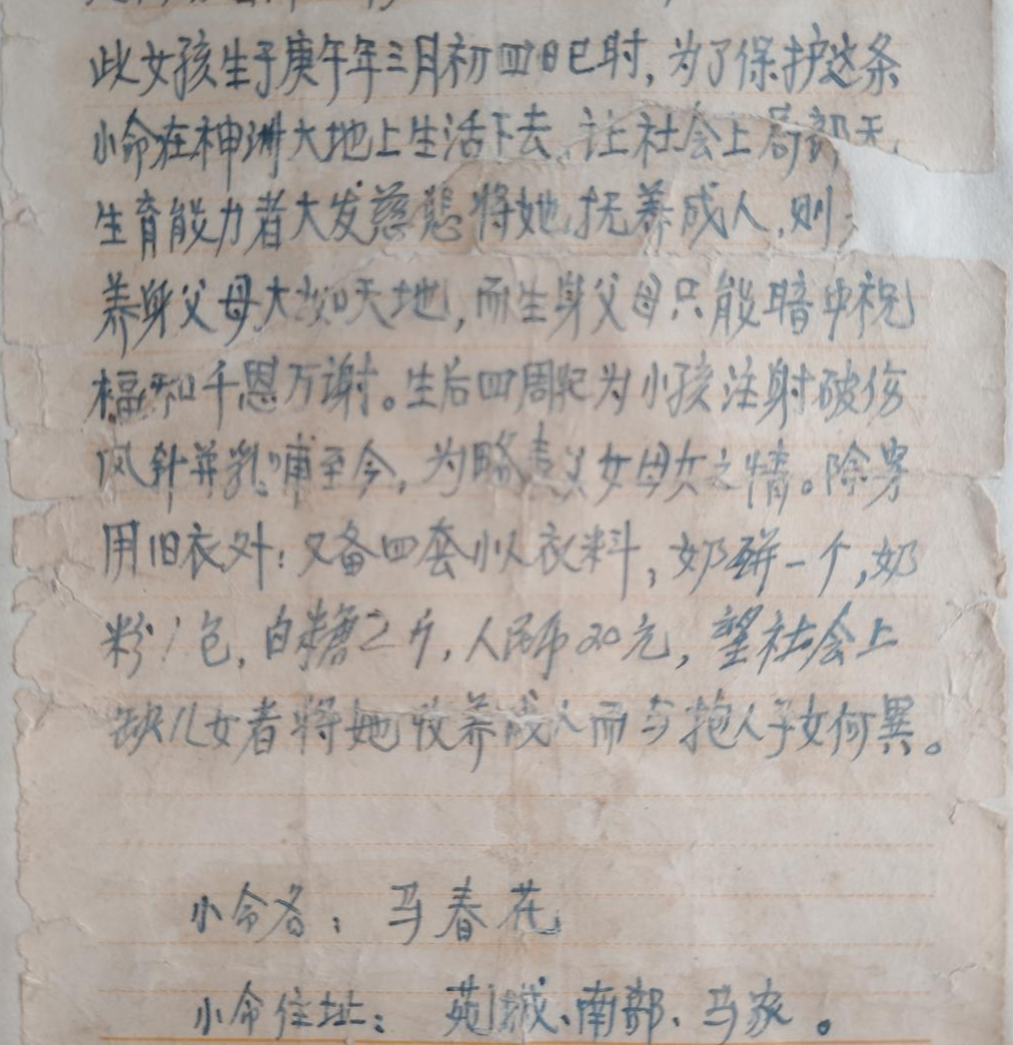 此女孩生于庚午年三月初四日巳时,为了保护这条
小命在神洲大地上生活下去、让社会上局部无
生育能力者大发慈悲将她抚养成人,则
养身父母大如天地,而生身父母只能暗中祝
福和千恩万谢。生后四周我为小孩注射破伤
风针并乳哺至今,为略表父女母女之情。除穿
用旧衣外:又备四套小人衣料,奶瓶一个,奶
粉1包,白糖2斤,人民币20元,望社会上
缺儿女者将她收养成人而与抱人子女何異。
小命名:马春花
小命住址:苑城、南部、马家。